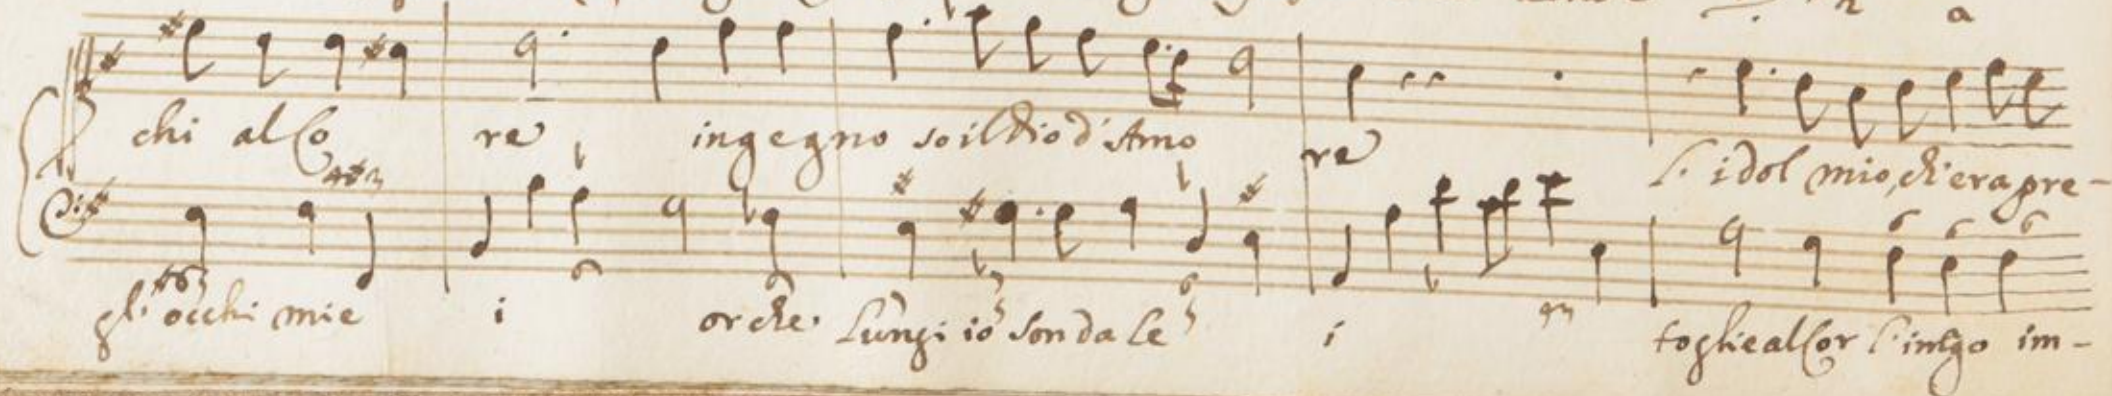 chi al Co re ingegno so il Dio d'Amo re L'idol mio, ch'era pre-
gl'occhi mie i or che Lungi io son da le i toglie al Cor l' im-